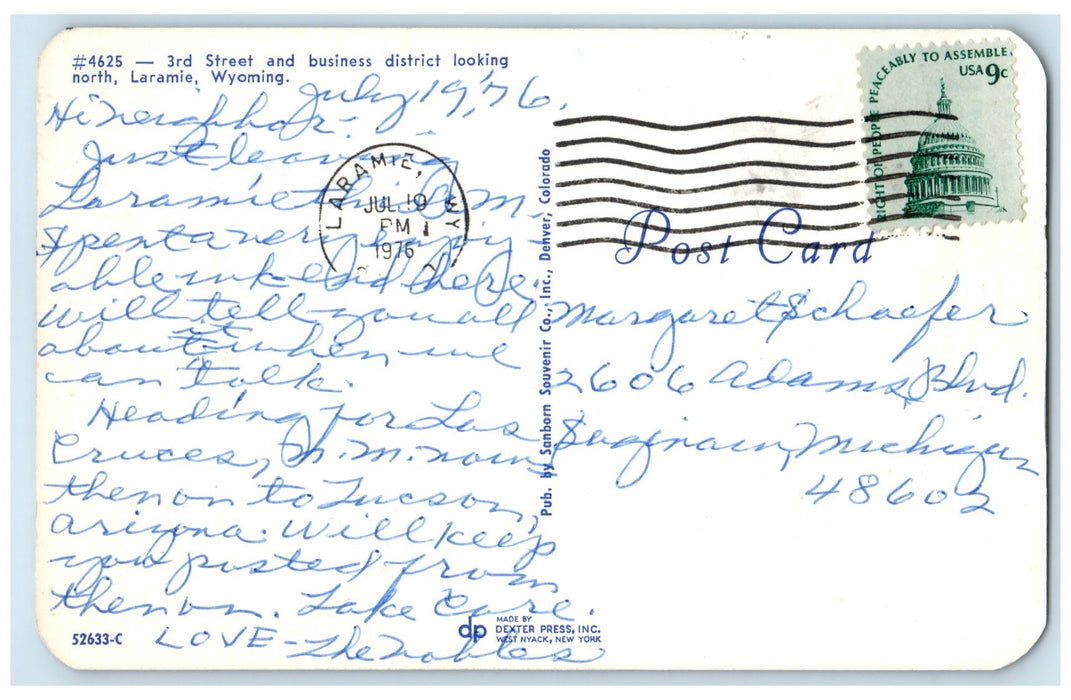 #4625 — 3rd Street and business district looking
north, Laramie, Wyoming.
July 19, '76.
Hi Neighbor -
Just leaving
Laramie this A.M.
Spent a very enjoy-
able wk-end here.
Will tell you all
about it when we
can talk.
Heading for Las
Cruces, N.M. now
then on to Tucson,
Arizona. Will keep
you posted from
then on. Take Care.
LOVE - The Nobles
52633-C
LARAMIE, WY
JUL 19
PM
1976
RIGHT OF PEOPLE PEACEABLY TO ASSEMBLE
USA 9c
Post Card
Pub. by Sanborn Souvenir Co., Inc., Denver, Colorado
Margaret Schaefer
2606 Adams Blvd.
Saginaw, Michigan
48602
dp
MADE BY
DEXTER PRESS, INC.
WEST NYACK, NEW YORK